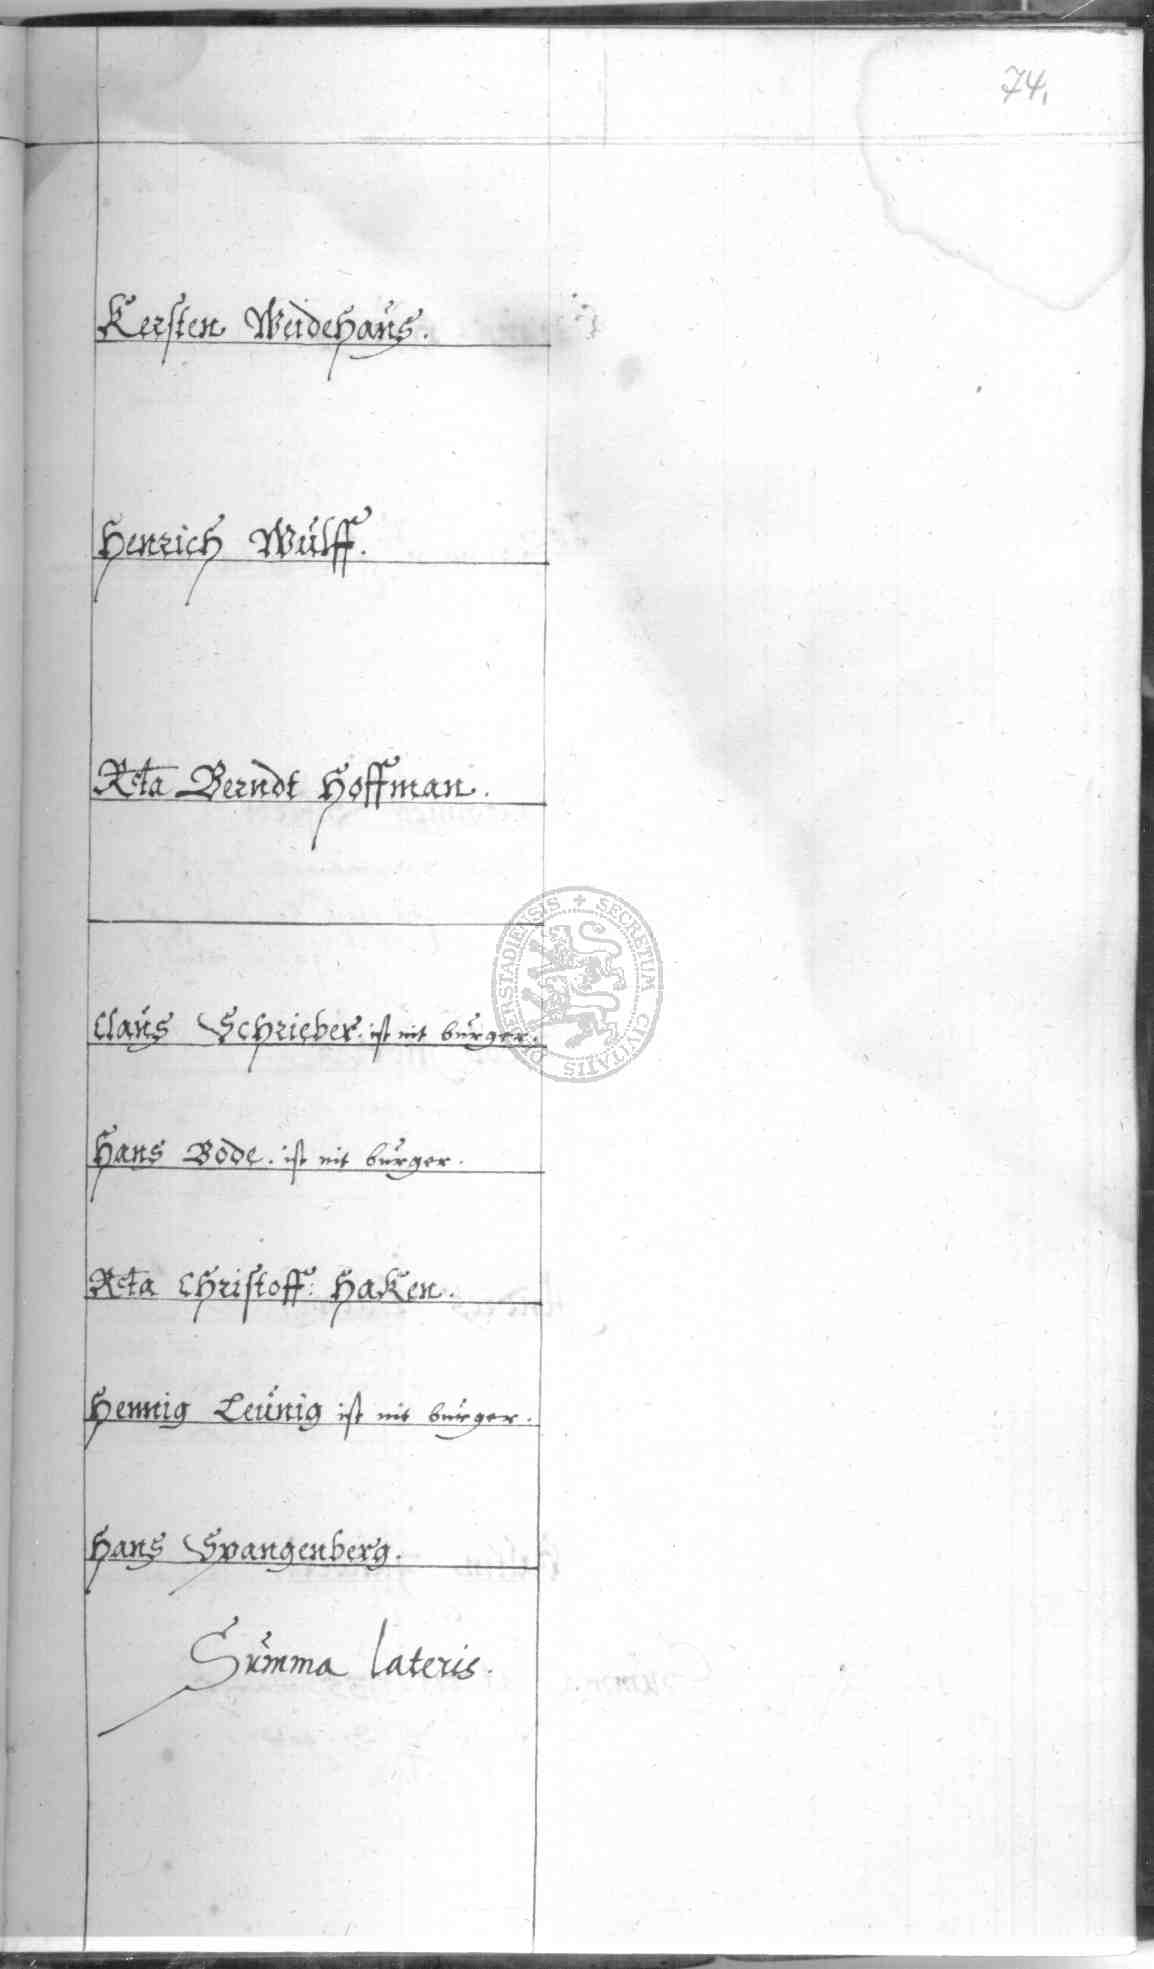 74.
Kersten Weidehaus.
Henrich Wulff.
Rcta Berndt Hoffman.
Claus Schrieber. ist nit burger.
Hans Bode. ist nit burger.
Rcta Christoff: Haken.
Hennig Leunig ist nit burger.
Hans Spangenberg.
Summa lateris.
SECRETUM CIVITATIS DUDERSTADIENSIS